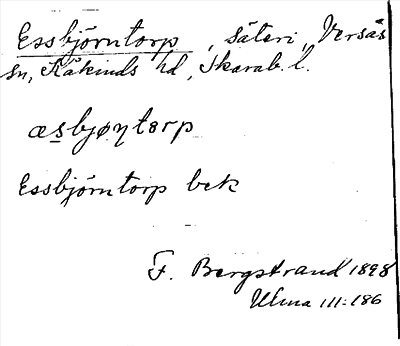 Essbjörntorp, säteri, Versås
sn, Kåkinds hd, Skarab. l.
æsbjøṇtɵrp
Essbjörntorp bek
F. Bergstrand 1898
Ulma 111:186